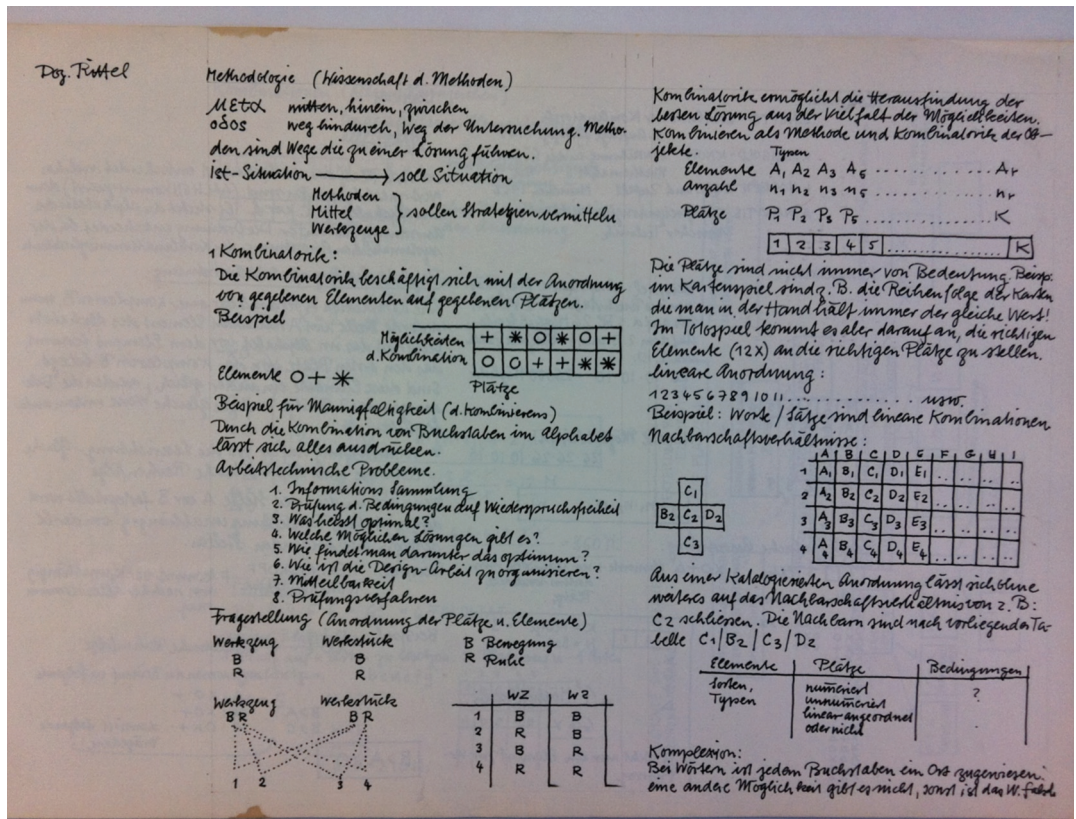 Doz. Rittel
Methodologie (Wissenschaft d. Methoden)
μετα mitten, hinein, zwischen
odos weg hindurch, Weg der Untersuchung. Metho-
den sind Wege die zu einer Lösung führen.
ist-Situation → soll Situation
Methoden
Mittel } sollen Strategien vermitteln
Werkzeuge
1 Kombinatorik:
Die Kombinatorik beschäftigt sich mit der Anordnung
von gegebenen Elementen auf gegebenen Plätzen.
Beispiel
Möglichkeiten + * O * O +
d. Kombination O O + + * *
Elemente O + *
Plätze
Beispiel für Mannigfaltigkeit (d. Kombinierens)
Durch die Kombination von Buchstaben im Alphabet
lässt sich alles ausdrücken.
Arbeitstechnische Probleme.
1. Informations Sammlung
2. Prüfung d. Bedingungen auf Wiederspruchsfreiheit
3. Was heisst optimal?
4. Welche Möglichen Lösungen gibt es?
5. Wie findet man darunter das optimum?
6. Wie ist die Design-Arbeit zu organisieren?
7. Mitteilbarkeit
8. Prüfungsverfahren
Fragestellung (Anordnung der Plätze u. Elemente)
Werkzeug Werkstück B Bewegung
B B R Ruhe
R R
Werkzeug Werkstück
BR BR
1 2 3 4
WZ WS
1 B B
2 R B
3 B R
4 R R
Kombinatorik ermöglicht die Herausfindung der
besten Lösung aus der Vielfalt der Möglichkeiten.
Kombinieren als Methode und Kombinatorik der Ob-
jekte.
Typen
Elemente A1 A2 A3 A5 .......... Ar
Anzahl n1 n2 n3 n5 .......... nr
Plätze P1 P2 P3 P5 .......... K
1 2 3 4 5 .......... K
Die Plätze sind nicht immer von Bedeutung. Beisp.
im Kartenspiel sind z. B. die Reihenfolge der Karten
die man in der Hand hält immer der gleiche Wert!
Im Totospiel kommt es aber darauf an, die richtigen
Elemente (12 X) an die richtigen Plätze zu stellen.
lineare Anordnung:
1 2 3 4 5 6 7 8 9 10 11 .......... usw.
Beispiel: Worte / Sätze sind lineare Kombinationen.
Nachbarschaftsverhältnisse:
C1
B2 C2 D2
C3
A B C D E F G H I
1 A1 B1 C1 D1 E1 .. .. .. ..
2 A2 B2 C2 D2 E2 .. .. .. ..
3 A3 B3 C3 D3 E3 .. .. .. ..
4 A4 B4 C4 D4 E4 .. .. .. ..
Aus einer Katalogisierten Anordnung lässt sich ohne
weiteres auf das Nachbarschaftsverhältnis von z. B:
C2 schliessen. Die Nachbarn sind nach vorliegender Ta-
belle C1/B2/C3/D2
Elemente Plätze Bedingungen
Sorten, numeriert ?
Typen unnumeriert
linear angeordnet
oder nicht
Komplexion:
Bei Wörtern ist jedem Buchstaben ein Ort zugewiesen.
eine andere Möglichkeit gibt es nicht, sonst ist das W. falsch